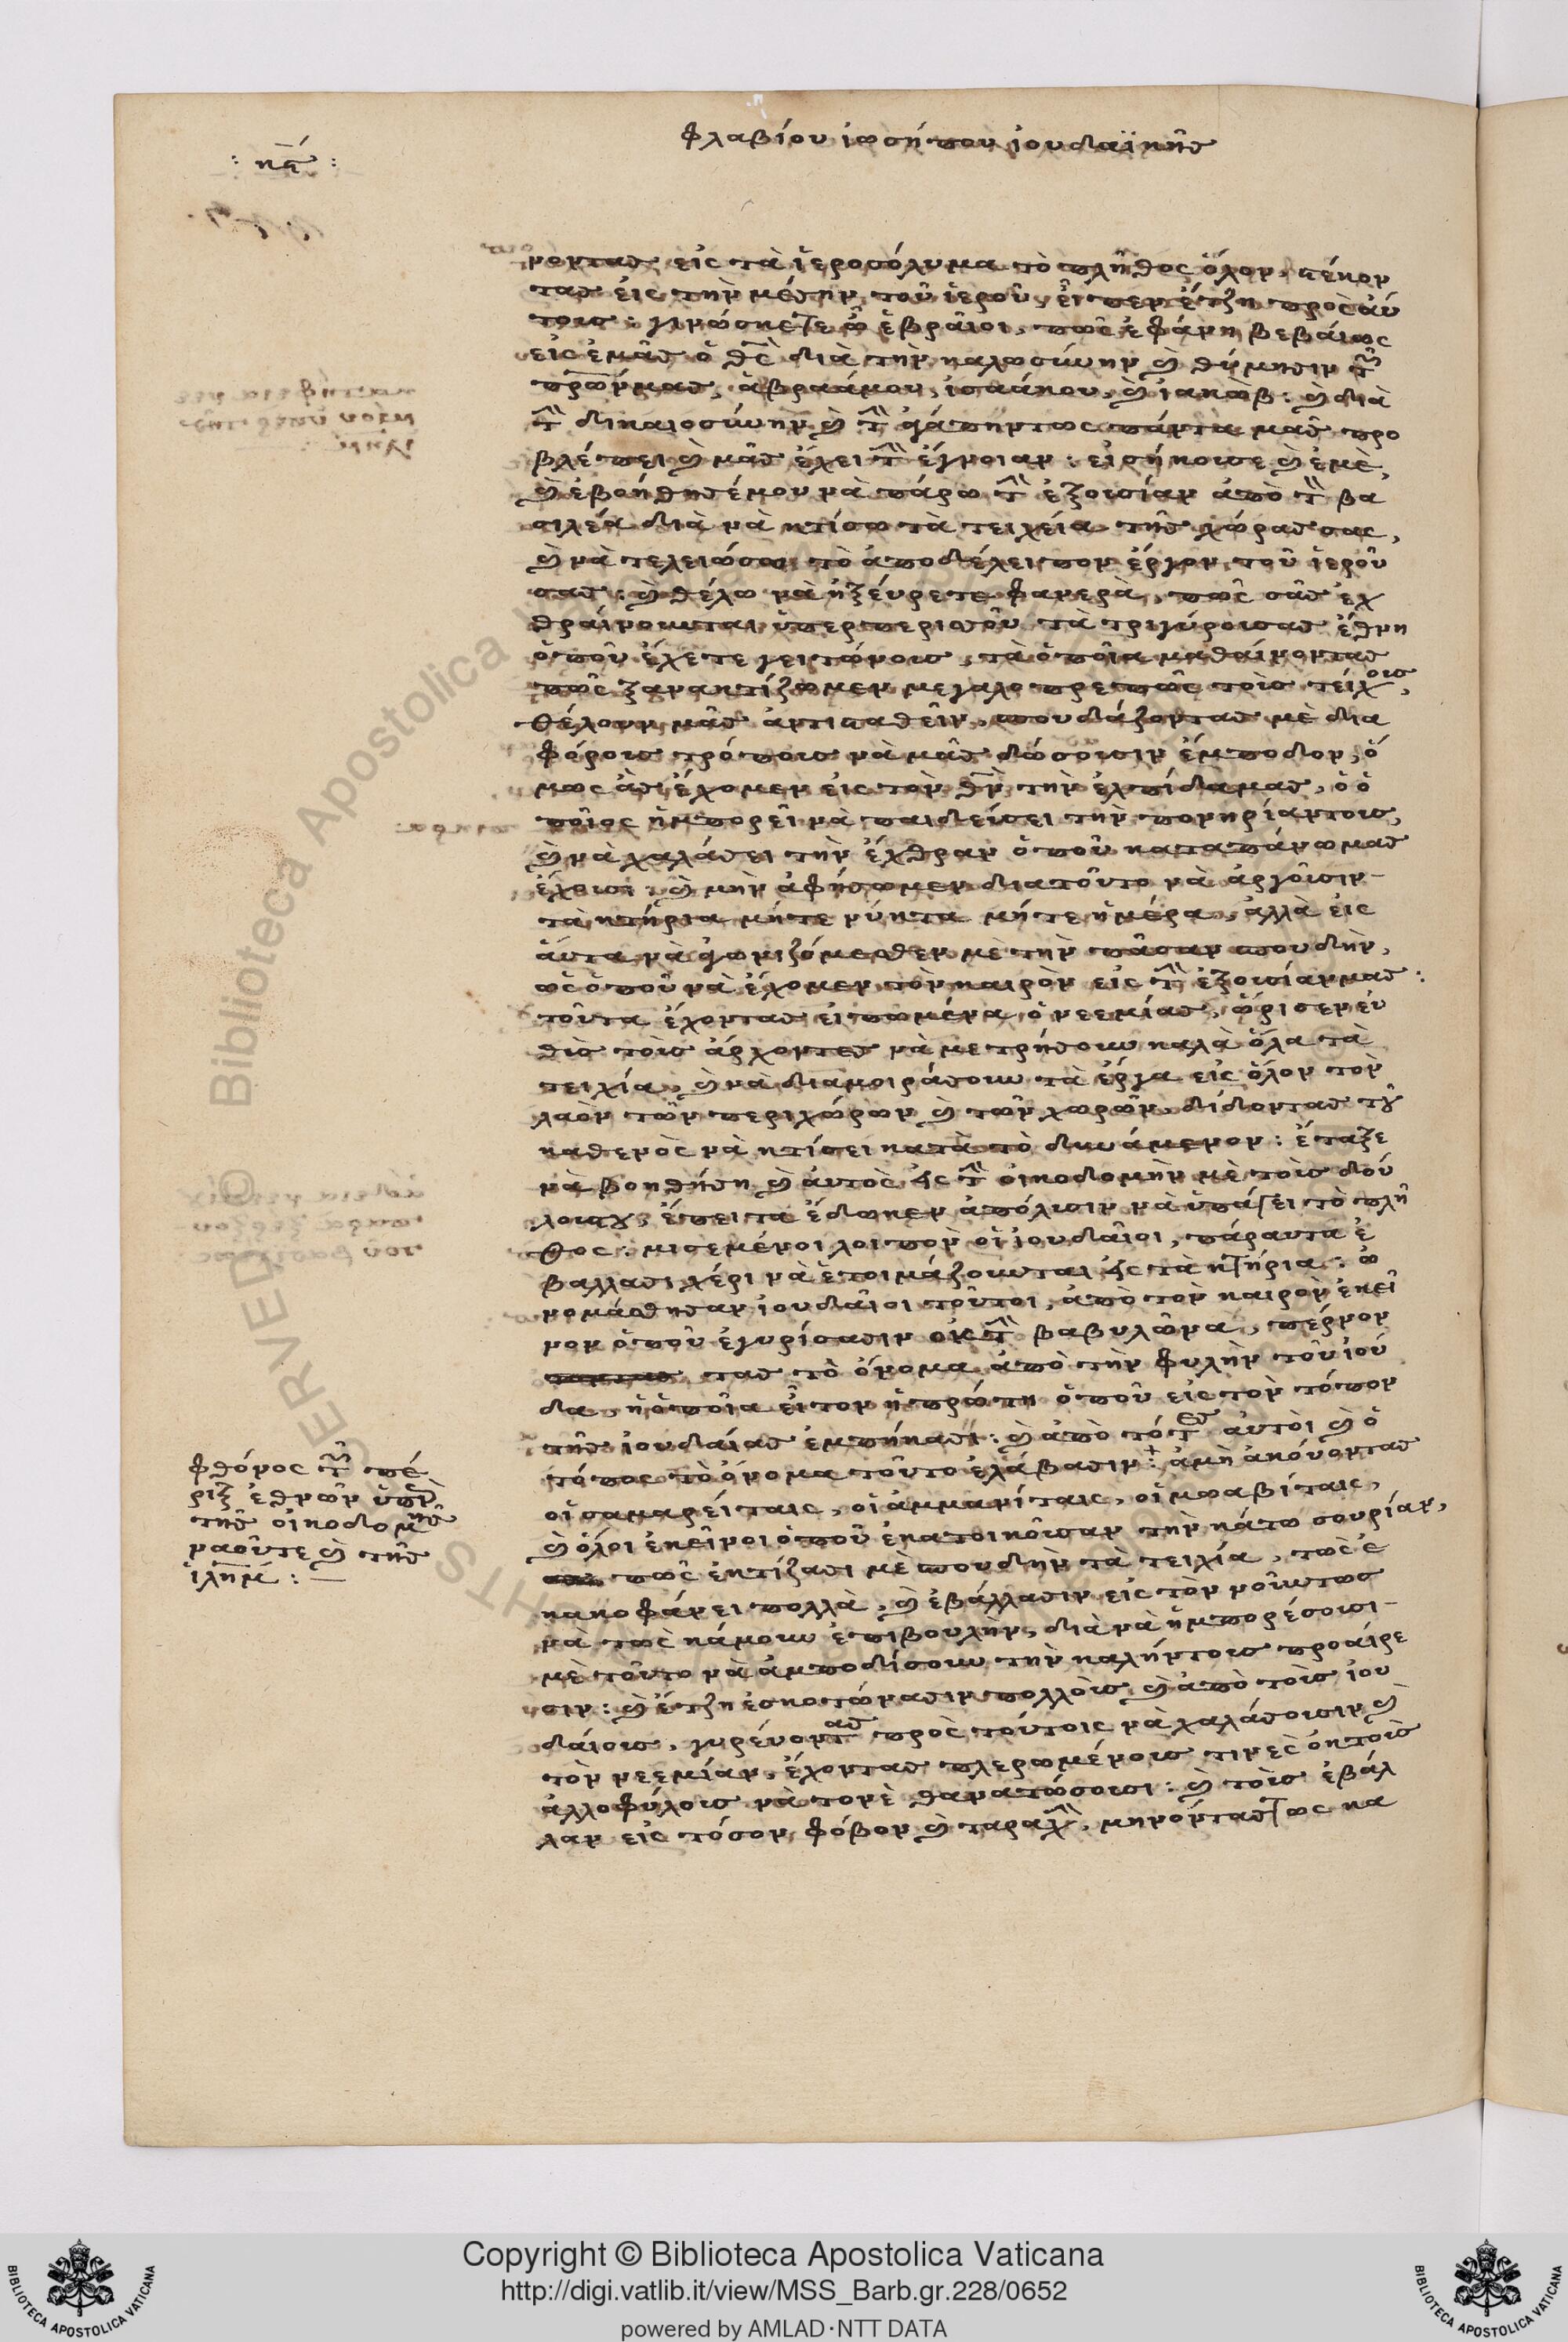 φλαβίου ἰωσήπου ἰουδαϊκῆς
νοντας εἰς τὰ ἱεροσόλυμα τὸ πλῆθος ὅλον, στένον
τας εἰς τὴν μέσην τοῦ ἱεροῦ, εἶπεν ἔτζη πρὸς ἀύ
τους: γινώσκετε ὦ ἑβραῖοι, πῶς ἐφάνη βεβάιως
εἰς ἐμᾶς ὁ θς διὰ τὴν καλωσύνην καὶ θύμησιν τῶν
πρωνμας, ἀβραάμου, ἰσαάκου, καὶ ἰακὼβ: καὶ διὰ
τὴν δικαιοσύνην καὶ τὴν ἀγάπηντως πάντα μᾶς προ
βλέπει καὶ μᾶς ἔχει τὴν ἔγνοιαν: εἰσήκουσε καὶ ἐμὲ,
καὶ ἐβοήθησέμου νὰ πάρω τὴν ἐξουσίαν ἀπὸ τὸν βα
σιλέα διὰ νὰ κτίσω τὰ τειχεία τῆς χώρας σας,
καὶ νὰ τελειώσω τὸ ἀποδέλειπον ἔργον τοῦ ἱεροῦ
σας: καὶ θέλω νὰ ἠξέυρετε φανερὰ, πῶς σᾶς ἐχ
θράινουνται ὑπερπερισοῦ τὰ τριγύρουσας ἔθνη
ὁποῦ ἔχετε γειτόνους, τὰ ὁποῖα μαθαίνοντας
πῶς ξανακτίζωμεν μεγαλοπρεπῶς τοὺς τείχους,
θέλουν μᾶς ἀντισταθεῖν, σπουδάζοντας μὲ δια
φόρους τρόπους νὰ μᾶς δώσουσιν ἔμποδον, ὅ
μως ἂς ἔχομεν εἰς τὸν θν τὴν ἐλπίδα μας, ὁ ὁ
ποῖος ἠμπορεῖ νὰ παιδεύσει τὴν πονηρίαντους,
καὶ νὰ χαλάσει τὴν ἔχθραν ὁποῦ καταπάνωμας
ἔχουσι: καὶ μὴν ἀφήσωμεν διατοῦτο νὰ ἀργοῦσιν
τὰ κτήρια μήτε νύκτα μήτε ἡμέρα, ἀλλὰ εἰς
ἀύτα νὰ ἀγωνιζόμεσθεν μὲ τὴν πᾶσαν σπουδὴν,
ὡς ὁποῦ νὰ ἔχομεν τὸν καιρὸν εἰς τὴν ἐξουσίανμας:
τοῦτα ἔχοντας εἰπωμένα ὁ νεεμίας, ὥρισεν ἐυ
θὺς τοὺς ἄρχοντες νὰ μετρήσουν καλὰ ὅλα τὰ
τειχία, καὶ νὰ διαμοιράσουν τὰ ἔργα εἰς ὅλον τὸν
λαὸν τῶν περιχώρων καὶ τῶν χωρῶν, δίδοντας τοῦ
καθενὸς νὰ κτίσει κατὰ τὸ δυνάμενον: ἔταξε
νὰ βοηθήση καὶ ἀυτὸς εἰς τὴν οἰκοδομὴν μὲ τοὺς δού
λουςτου, ἔπειτα ἔδωκεν ἀπόλυσιν νὰ ὑπάγει τὸ πλῆ
θος: μισεμένοι λοιπὸν οἱ ἰουδαῖοι, πάραυτα ἐ
βάλλασι χέρι νὰ ἑτοιμάζουνται εἰς τὰ κτήρια: ὠ
νομάσθησαν ἰουδαῖοι τοῦτοι, ἀπὸ τὸν καιρὸν ἐκεῖ
νον ὁποῦ ἐγυρίσασιν ἐκ τὴν βαβυλῶνα, πέρνον
τας τὸ ὄνομα ἀπὸ τὴν φυλὴν τοῦ ἰού
δα, ἡ ὁποῖα εἶτον ἡ πρώτη ὁποῦ εἰς τὸν τόπον
τῆς ἰουδαίας ἐμπήκασι: καὶ ἀπὸ τότες αὐτοὶ καὶ ὁ
τόπος τὸ ὄνομα τοῦτο ἐλάβασιν: ἀμὴ ἀκούοντας
οἱ σαμαρείταις, οἱ ἀμμανίταις, οἱ μωαβίταις,
καὶ ὅλοι ἐκεῖνοι ὁποῦ ἐκατοικοῦσαν τὴν κάτω συρίαν,
πῶς ἐκτίζασι μὲ σπουδὴν τὰ τειχία, τοὺς ἐ
κακοφάνει πολλὰ, καὶ ἐβάλλασιν εἰς τὸν νοῦντους
νὰ τοὺς κάμουν ἐπιβουλὴν, διὰ νὰ ἠμπορέσουσι
μὲ τοῦτο νὰ ἀμποδίσουν τὴν καλήντους προάιρε
σιν: καὶ ἔτζη ἐσκοτώνασιν πολλοὺς καὶ ἀπὸ τοὺς ἰου
δάιους, γυρέυοντας πρὸς τούτοις νὰ χαλάσουσιν καὶ
τὸν νεεμίαν, ἔχοντας πλερωμένους τινὲς ἐκ τοὺς
ἀλλοφύλους νὰ τονὲ θανατώσουσι: καὶ τοὺς ἐβάλ
λαν εἰς τόσον φόβον καὶ ταραχὴν, μηνόντας τως κα
φθόνος τῶν πέ
ριξ ἐθνῶν ὑπὲρ
τῆς οἰκοδομῆς
ναοῦτε καὶ τῆς
ἱλημ: